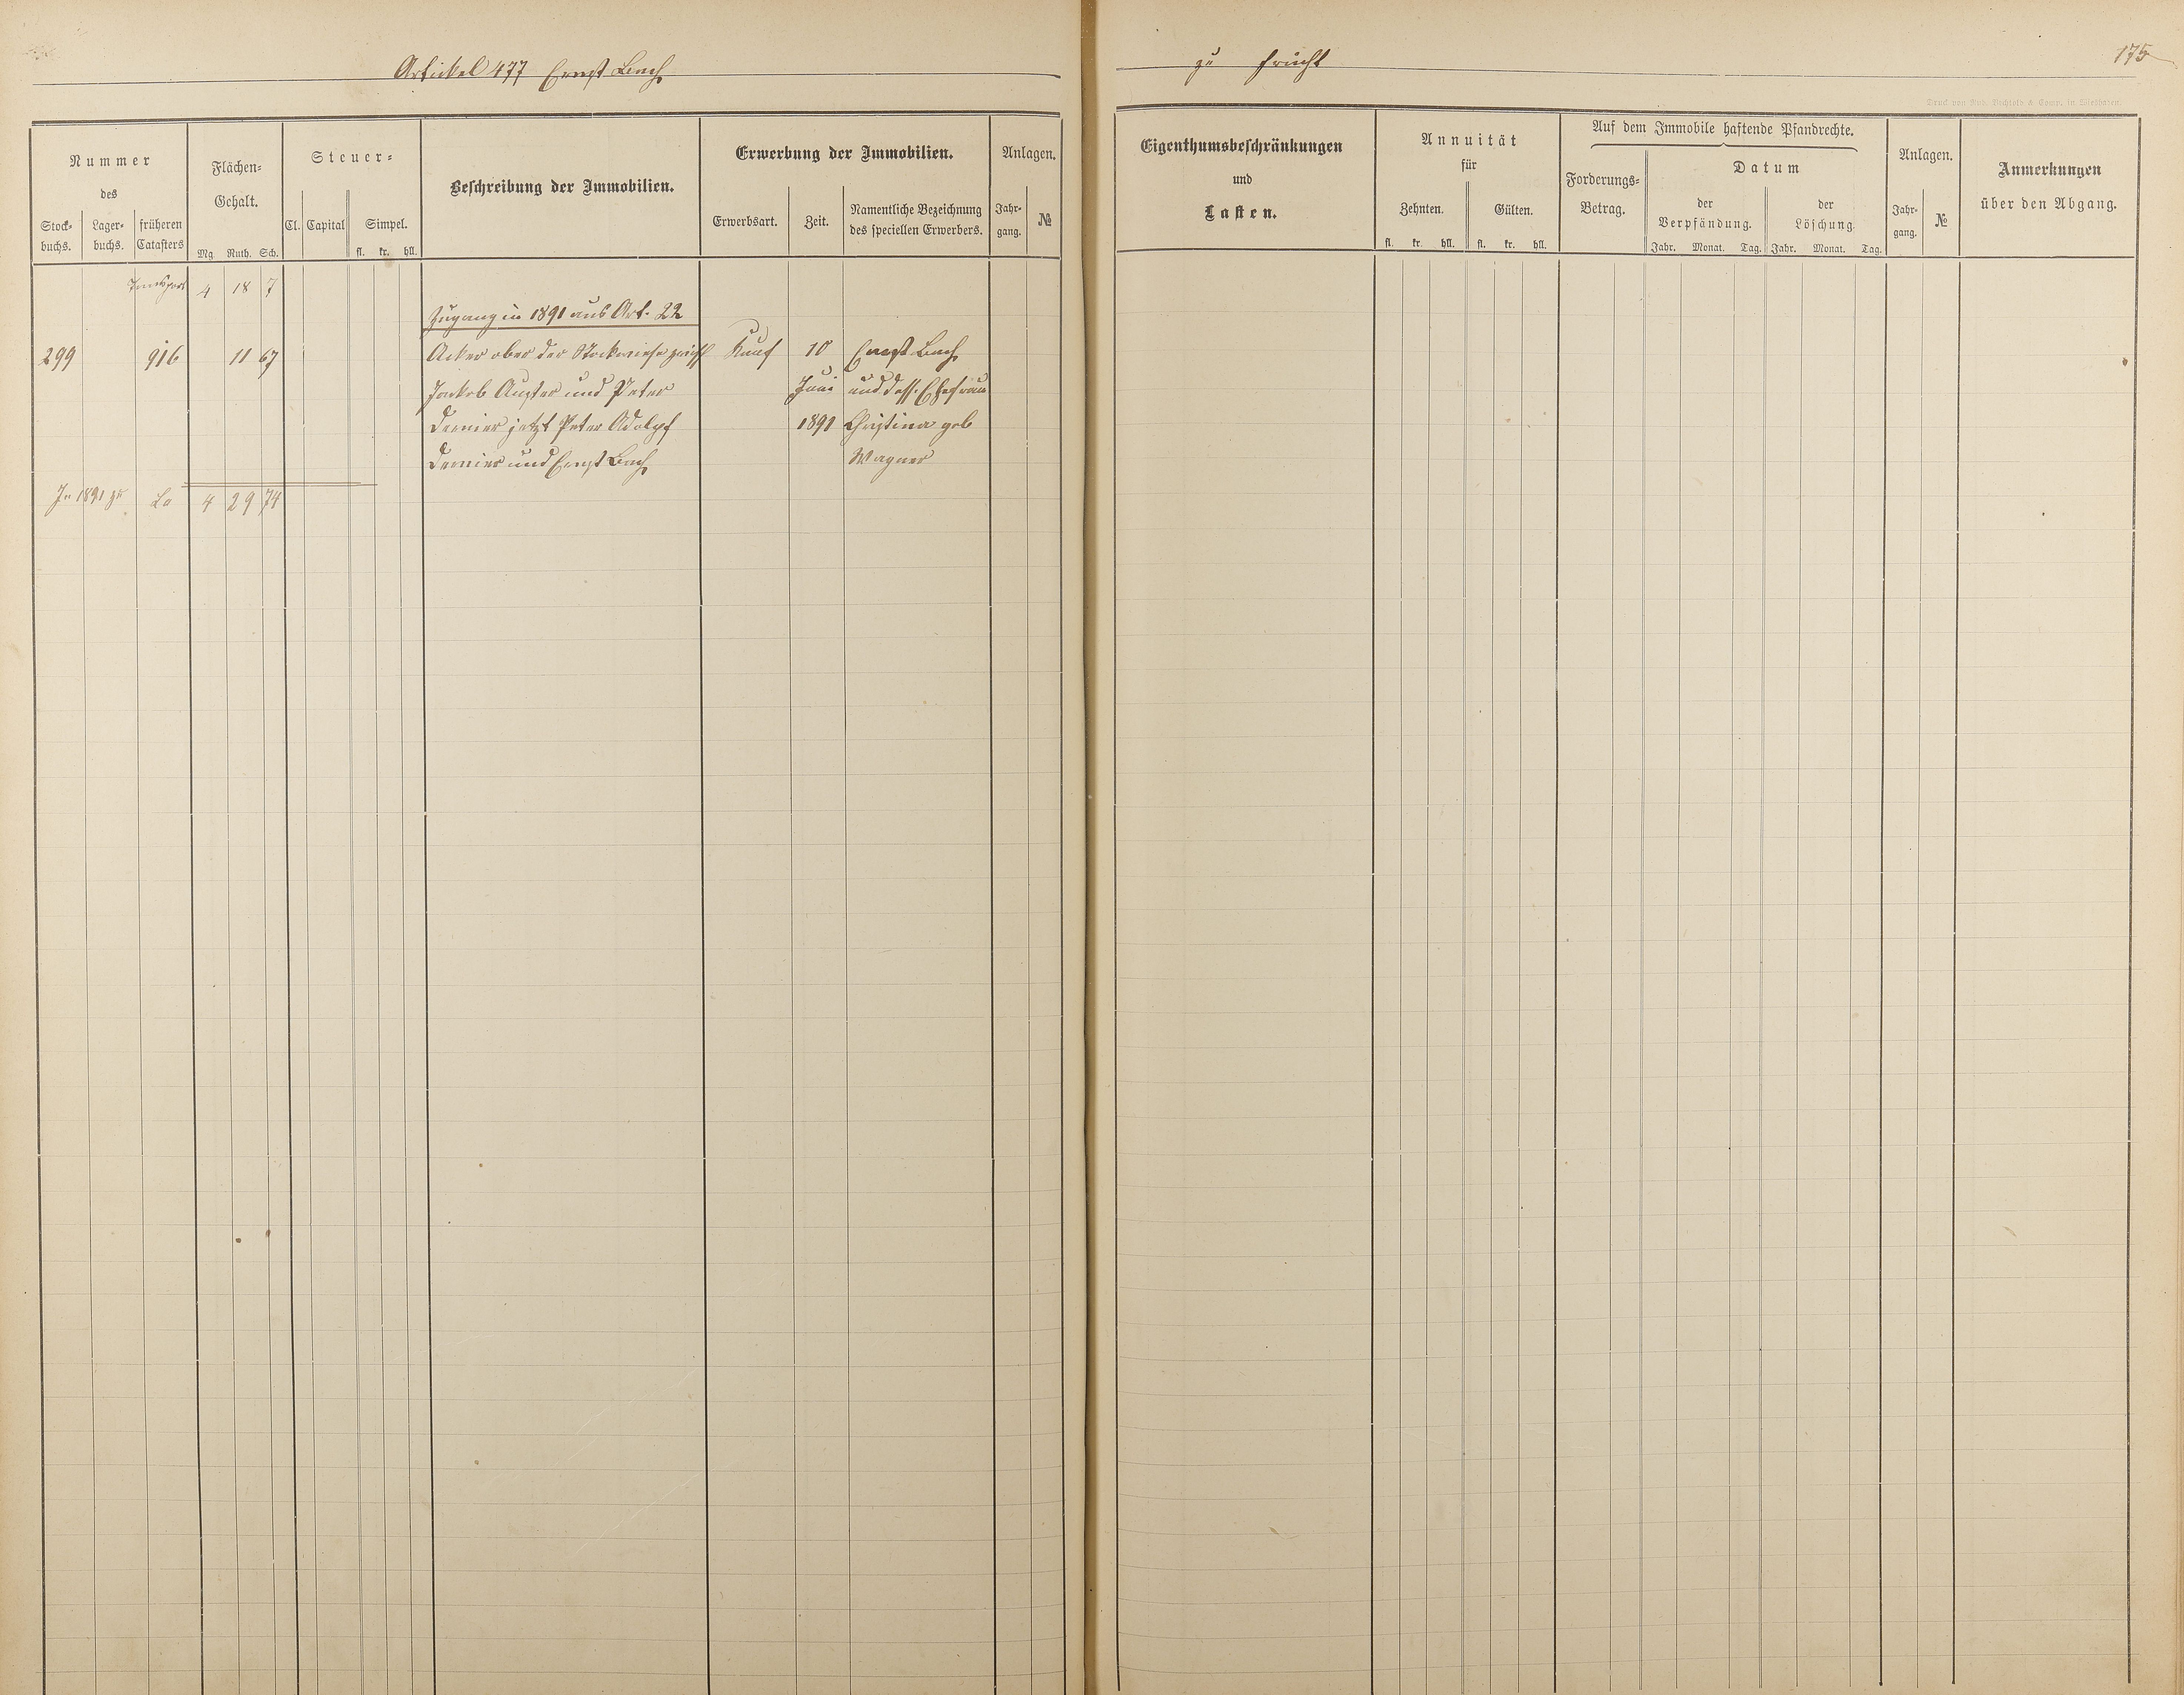 Artickel 477 Ernst Bach
zu Frücht
175
Druck von Rud. Bechtold & Comp. in Wiesbaden.
Nummer
des
Stock-
buchs.
Lager-
buchs.
früheren
Catasters
Flächen-
Gehalt.
Mg Ruth. Sch.
Steuer-
Cl. Capital
Simpel.
fl. kr. hll.
Beschreibung der Immobilien.
Erwerbung der Immobilien.
Erwerbsart.
Zeit.
Namentliche Bezeichnung
des speciellen Erwerbers.
Anlagen.
Jahr-
gang.
№
Eigenthumsbeschränkungen
und
Lasten.
Annuität
für
Zehnten.
Gülten.
fl. kr. hll. fl. kr. hll.
Auf dem Immobile haftende Pfandrechte.
Forderungs-
Betrag.
Datum
der
Verpfändung.
der
Löschung
Jahr. Monat. Tag. Jahr. Monat. Tag.
Anlagen.
Jahr-
gang.
№
Anmerkungen
über den Abgang.
Transport 4 18 7
Zugang in 1891 aus Art. 22
299 916 11 67 Acker ober der Stockwiese zwisch Kauf 10 Ernst Bach
Jackob Augster und Peter Juni und dess. Ehefrau
Dernier jetzt Peter Adolph 1891 Christina geb
Dernier und Ernst Bach Wagner
In 1891 4 29 74